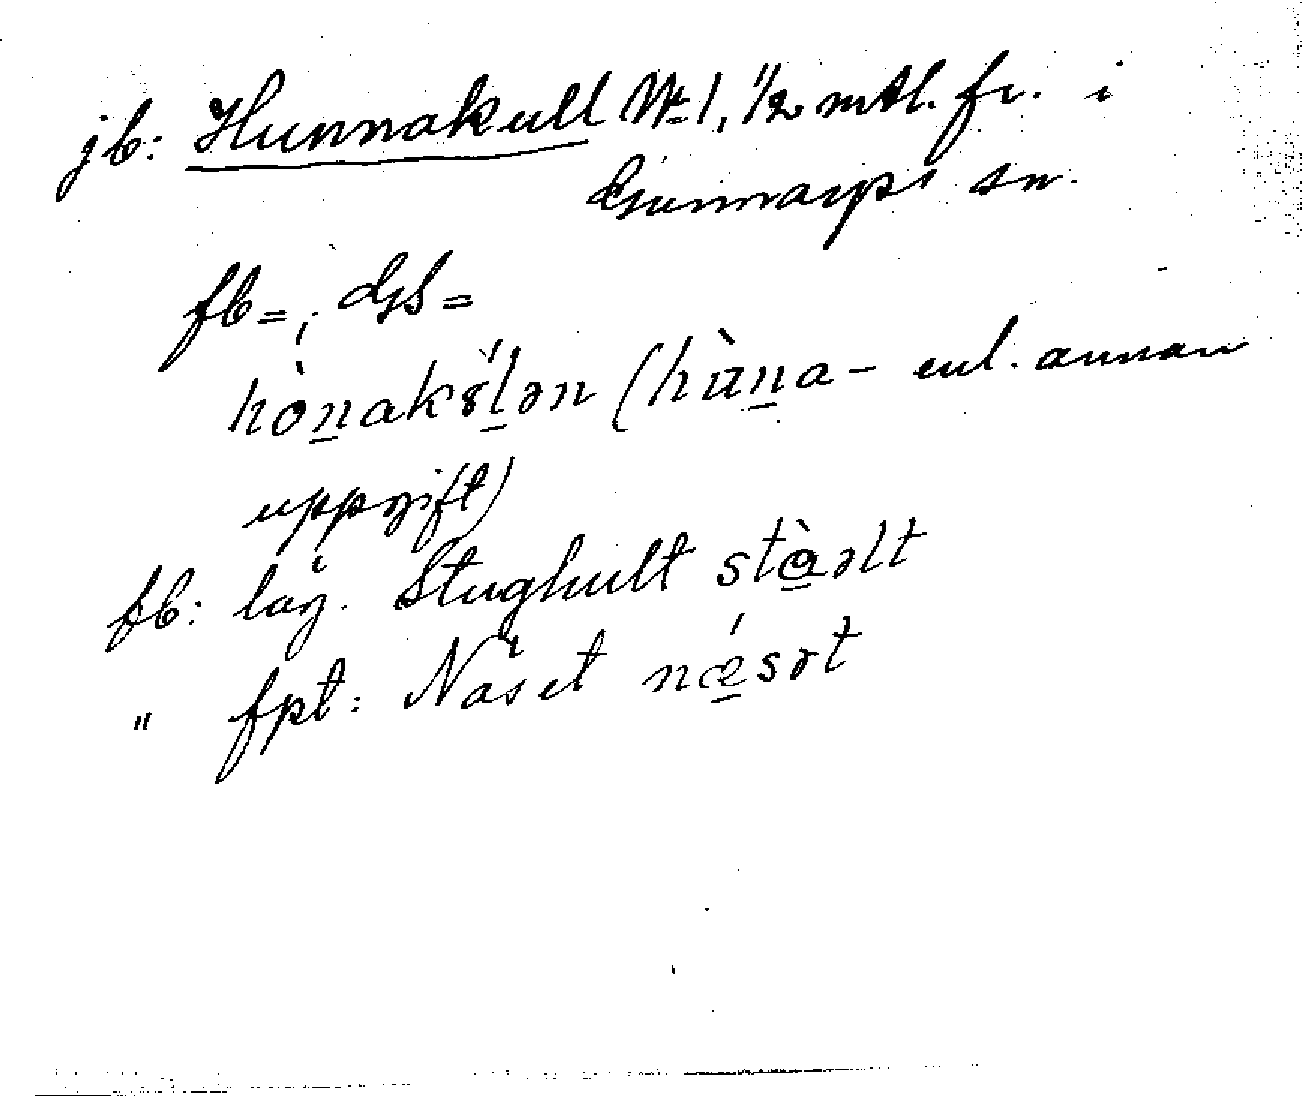 jb: Hunnakull № 1, 1/2 mtl. fr. i
Gunnarps sn.
fb =; GS =
hòn̲akɤ́l̲ən (hùn̲a- enl. annan
uppgift)
fb: läg. Stughult stàəlt
" fpt: Näset nǽsət